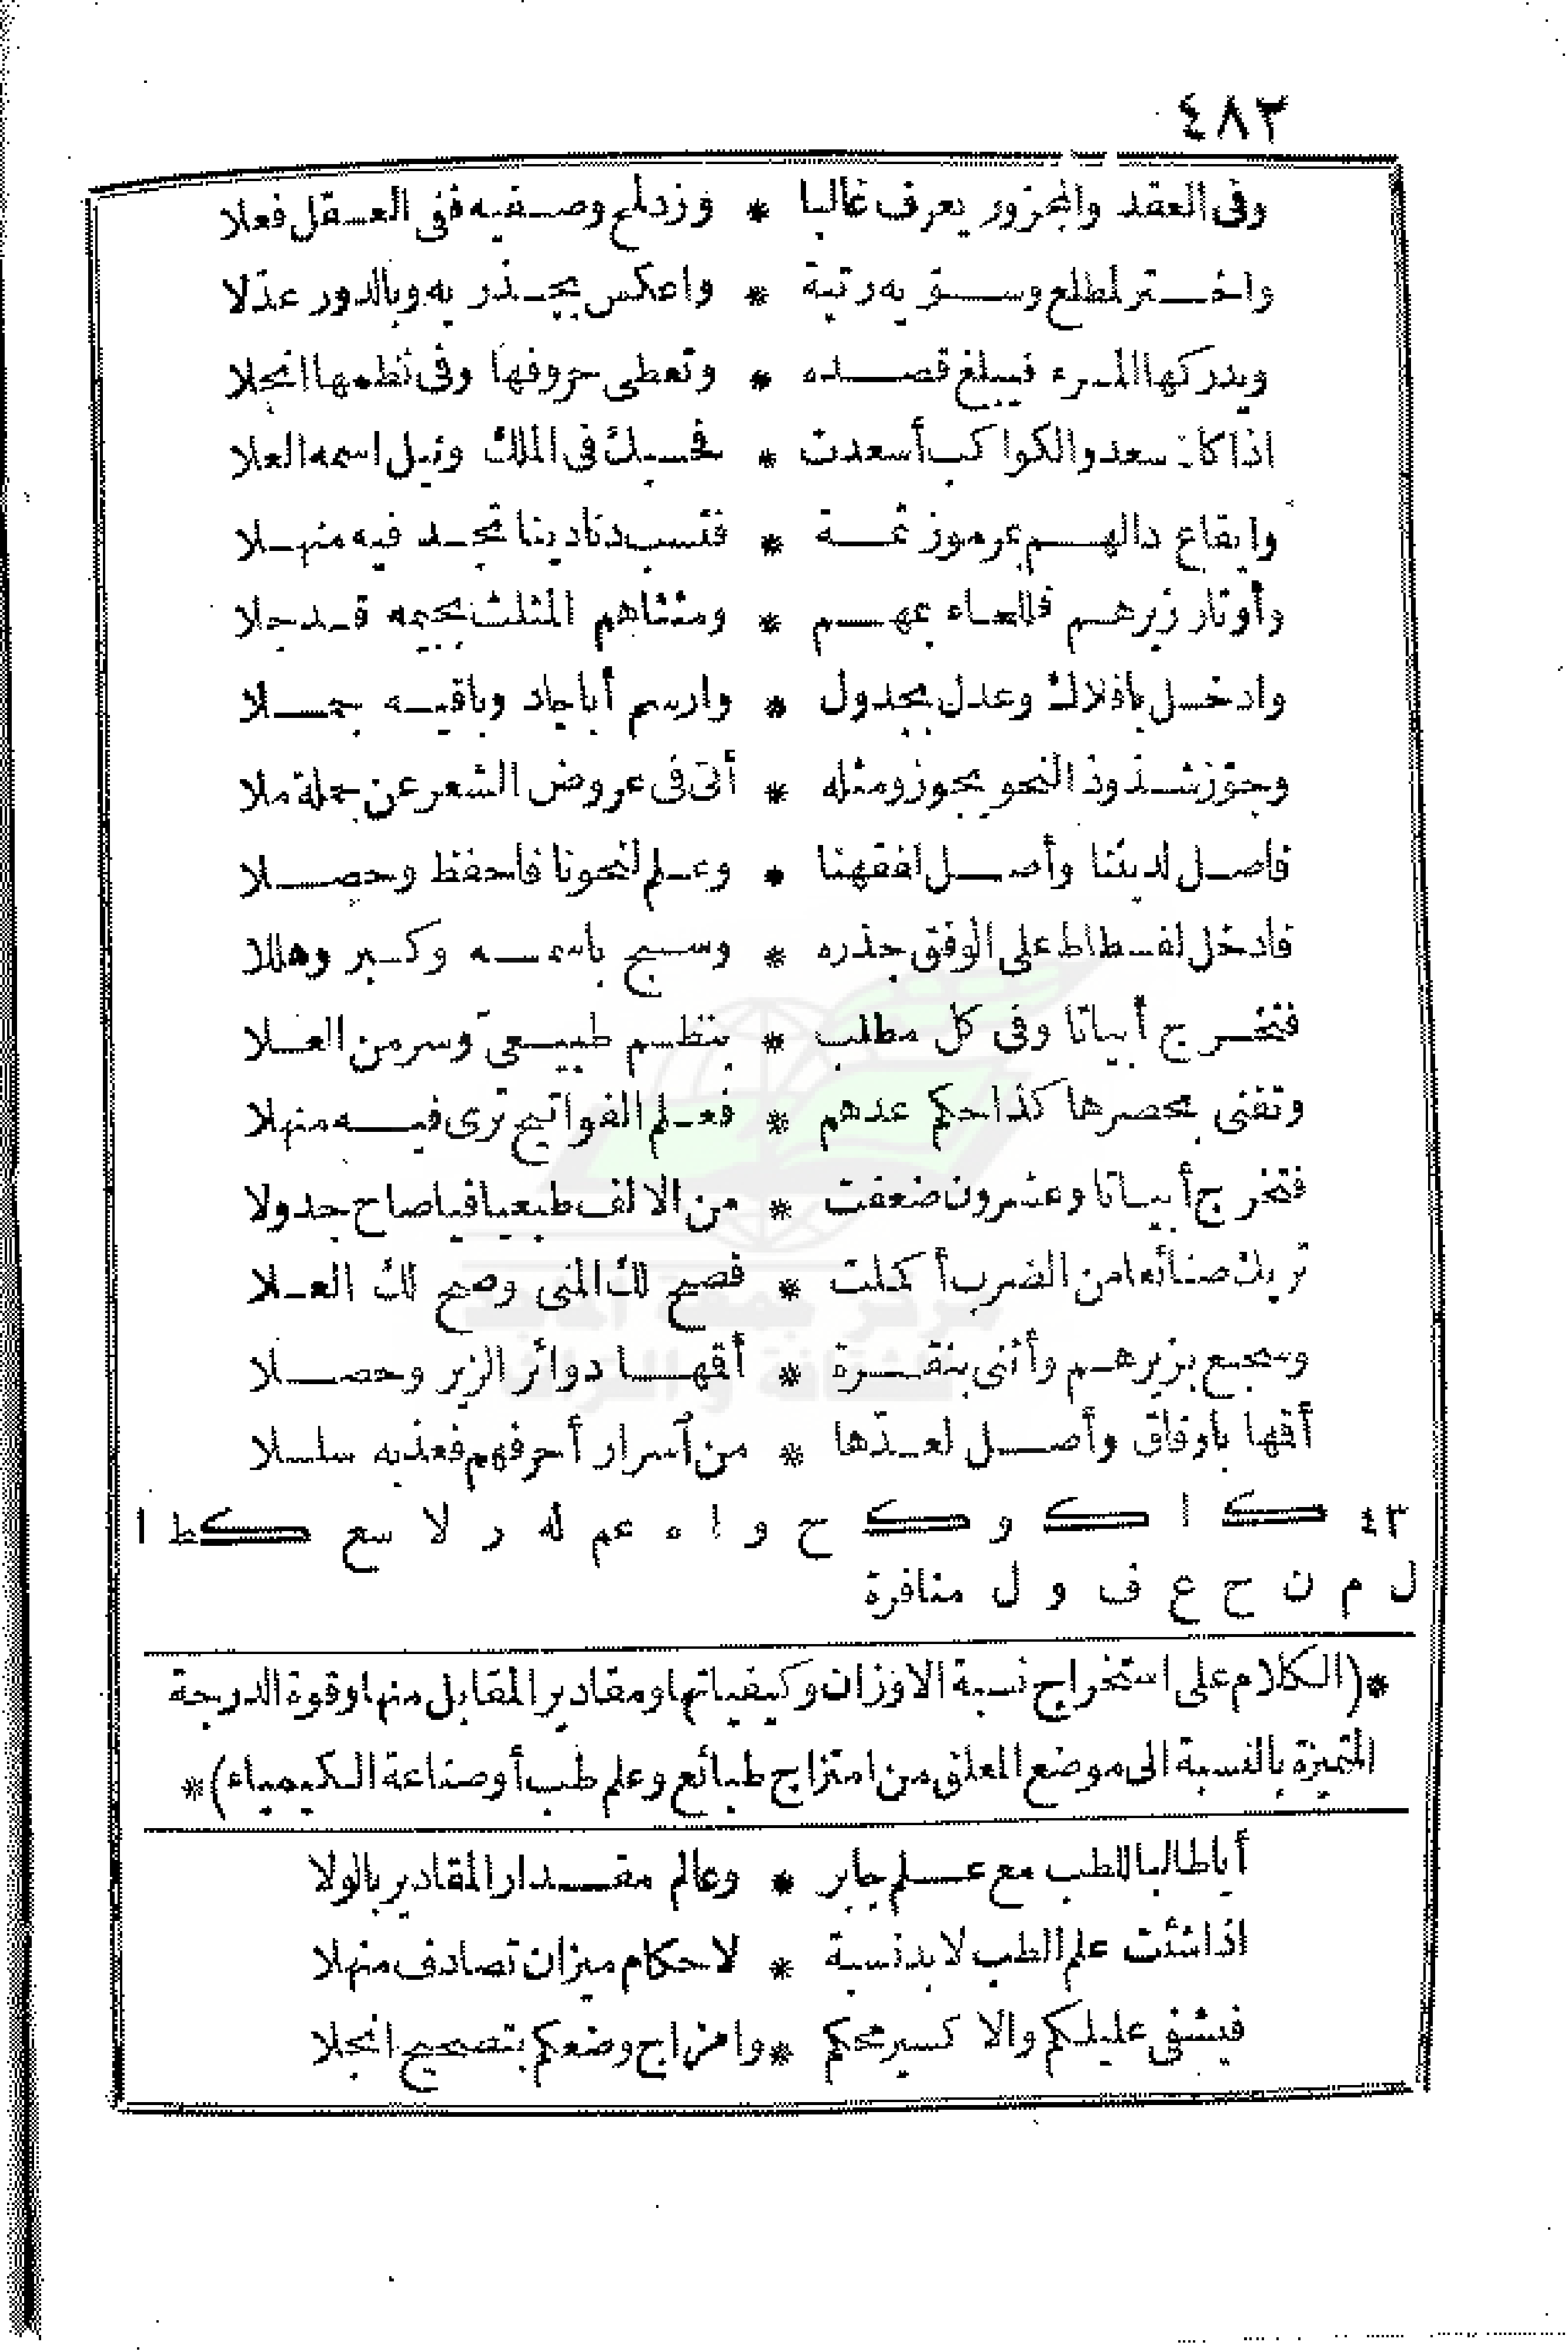 ٤٨٣
وفى العقد والمجزور يعرف غالبا * وزد لمح وصفيه ففى العقل فعلا
واختر لمطلع وسوّ به رتبة * واعكس بجذريه وبالدور عدّلا
ويدركها المرء فيبلغ قصده * وتعطى حروفها وفى نظمها انجلا
اذا كان سعد والكواكب أسعدت * فحسبك فى الملك ونيل اسمه العلا
وايقاع دالهم بمرموز ثمة * فنسب دنادينا تجد فيه منهلا
وأوتار زيرهم فللحاء بمهم * ومثناهم المثلث بجيمه قد جلا
وادخل بافلاك وعدل بجدول * وارسم أباجاد وباقيه جملا
وجوّز شذوذ النحو يجوز ومثله * أتى فى عروض الشعر عن جملة ملا
فاصل لديننا وأصل لفقهنا * وعلم لنحونا فاحفظ وحصلا
فادخل لفسطاط على الوفق جذره * وسبح باسمه وكبر وهللا
فتخرج أبياتا وفى كل مطلب * بنظم طبيعىّ وسر من العلا
وتفنى بحصرها كذا حكم عدهم * فعلم الفواتيح ترى فيه منهلا
فتخرج أبياتا وعشرون ضعفت * من الالف طبعيا فياصاح جدولا
تريك صنائعا من الضرب أكملت * فصح لك المنى وصح لك العلا
وسجع بزيرهم وأثنى بنقرة * أقمها دوائر الزير وحصلا
أقمها باوفاق وأصل لعدّها * من أسرار أحرفهم فعذبه سلسلا
٤٣ ك ا ك و ك ح و ا ه عم له ر لا سع كط ا
ل م ن ح ع ف و ل منافرة
*(الكلام على استخراج نسبة الاوزان وكيفياتها ومقادير المقابل منها وقوة الدرجة
المتميزة بالنسبة الى موضع المعلق من امتزاج طبائع وعلم طب أو صناعة الكيمياء)*
أيا طالبا للطب مع علم جابر * وعالم مقدار المقادير بالولا
اذا شئت علم الطب لا بد نسبة * لاحكام ميزان تصادف منهلا
فيشفى عليلكم والاكسير محكم * وامزاج وضعكم بتصحيح انجلا